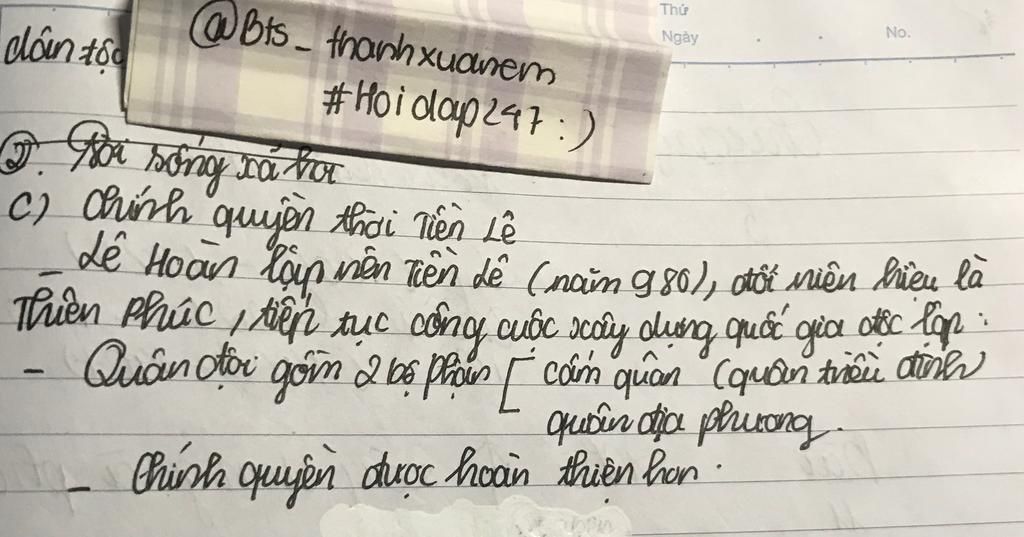 Thứ
Ngày . . No.
dân tộc
@Bts_thanhxuanem
#Hoidap247:)
②. Đời sống xã hội
c) Chính quyền thời Tiền Lê
_ Lê Hoàn lập nên Tiền Lê (năm 980), đổi niên hiệu là
Thiên Phúc, tiếp tục công cuộc xây dựng quốc gia độc lập.
- Quân đội gồm 2 bộ phận [ cấm quân (quân triều đình)
quân địa phương.
_ Chính quyền được hoàn thiện hơn.